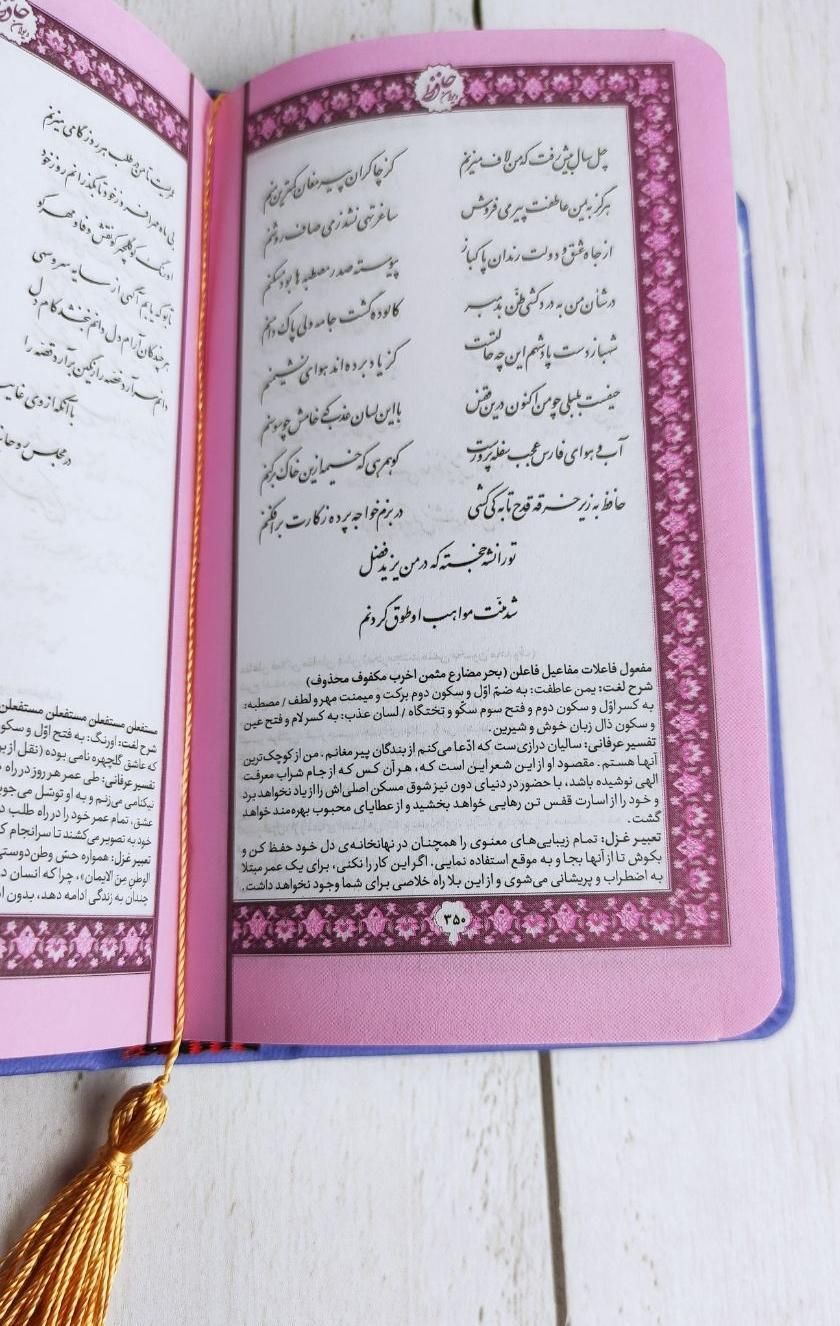 حافظ
دیوان
چل سال بیش رفت که من لاف میزنم کز چاکران پیر مغان کمترین منم
هرگز به یمن عاطفت پیر می فروش ساغر تهی نشد ز می صاف روشنم
از جاه عشق و دولت رندان پاکباز پیوسته صدر مصطبه ها بود مسکنم
در شان من به دردکشی ظنّ بد مبر کالوده گشت جامه ولی پاک دامنم
شهباز دست پادشهم این چه حالتست کز یاد برده اند هوای نشیمنم
حیفست بلبلی چو من اکنون درین قفس با این لسان عذب که خامش چو سوسنم
آب و هوای فارس عجب سفله پرورست کو همرهی که خیمه ازین خاک برکنم
حافظ به زیر خرقه قدح تا به کی کشی در بزم خواجه پرده ز کارت برافکنم
تورانشه خجسته که در من یزید فضل
شد منّت مواهب او طوق گردنم
مفعول فاعلات مفاعیل فاعلن (بحر مضارع مثمن اخرب مکفوف محذوف)
شرح لغت: یمن عاطفت: به ضمّ اوّل و سکون دوم برکت و میمنت مهر و لطف / مصطبه:
به کسر اوّل و سکون دوم و فتح سوم سکّو و تختگاه / لسان عذب: به کسر لام و فتح عین
و سکون ذال زبان خوش و شیرین.
تفسیر عرفانی: سالیان درازی‌ست که ادّعا می‌کنم از بندگان پیر مغانم. من از کوچک‌ترین
آنها هستم. مقصود او از این شعر این است که، هر آن کس که از جام شراب معرفت
الهی نوشیده باشد، با حضور در دنیای دون نیز شوق مسکن اصلی‌اش را از یاد نخواهد برد
و خود را از اسارت قفس تن رهایی خواهد بخشید و از عطایای محبوب بهره‌مند خواهد
گشت.
تعبیر غزل: تمام زیبایی‌های معنوی را همچنان در نهانخانه‌ی دل خود حفظ کن و
بکوش تا از آنها بجا و به موقع استفاده نمایی. اگر این کار را نکنی، برای یک عمر مبتلا
به اضطراب و پریشانی می‌شوی و از این بلا راه خلاصی برای شما وجود نخواهد داشت.
۳۵۰
تا من در طلب هر روز گامی میزنم
بی ماه مهر افروز خود تا بگذرانم روز خود
اورنگ کو گلچهر کو نقش وفا و مهر کو
تا بو که یابم آگهی از سایه سرو سهی
هر چند کان آرام دل دانم نبخشد کام دل
دانم سر آرد غصه را رنگین برآرد قصه را
با آنکه از وی غایب
در مجلس روحانی
مستفعلن مستفعلن مستفعلن مستفعلن
شرح لغت: اورنگ: به فتح اوّل و سکون
که عاشق گلچهره نامی بوده (نقل از
تفسیر عرفانی: طی عمر هر روز در راه
نیکنامی می‌زنم و به او توسّل می‌جویم
عشق، تمام عمر خود را در راه طلب
خود به تصویر می‌کشند تا سرانجام
تعبیر غزل: همواره حسّ وطن‌دوستی
الوطن مِنَ الایمان»، چرا که انسان
چندان به زندگی ادامه دهد، بدون